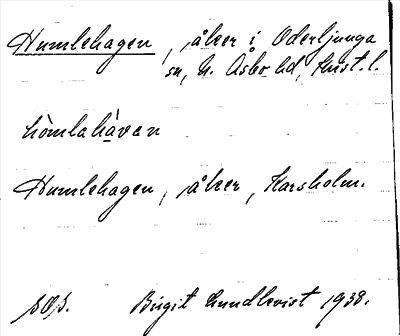 Humlehagen, åker i Oderljunga
sn, N. Åsbo hd, Krist. l.
hòmlahàvan
Humlehagen, åker, Karsholm.
SOJ.
Birgit Lundkvist 1938.